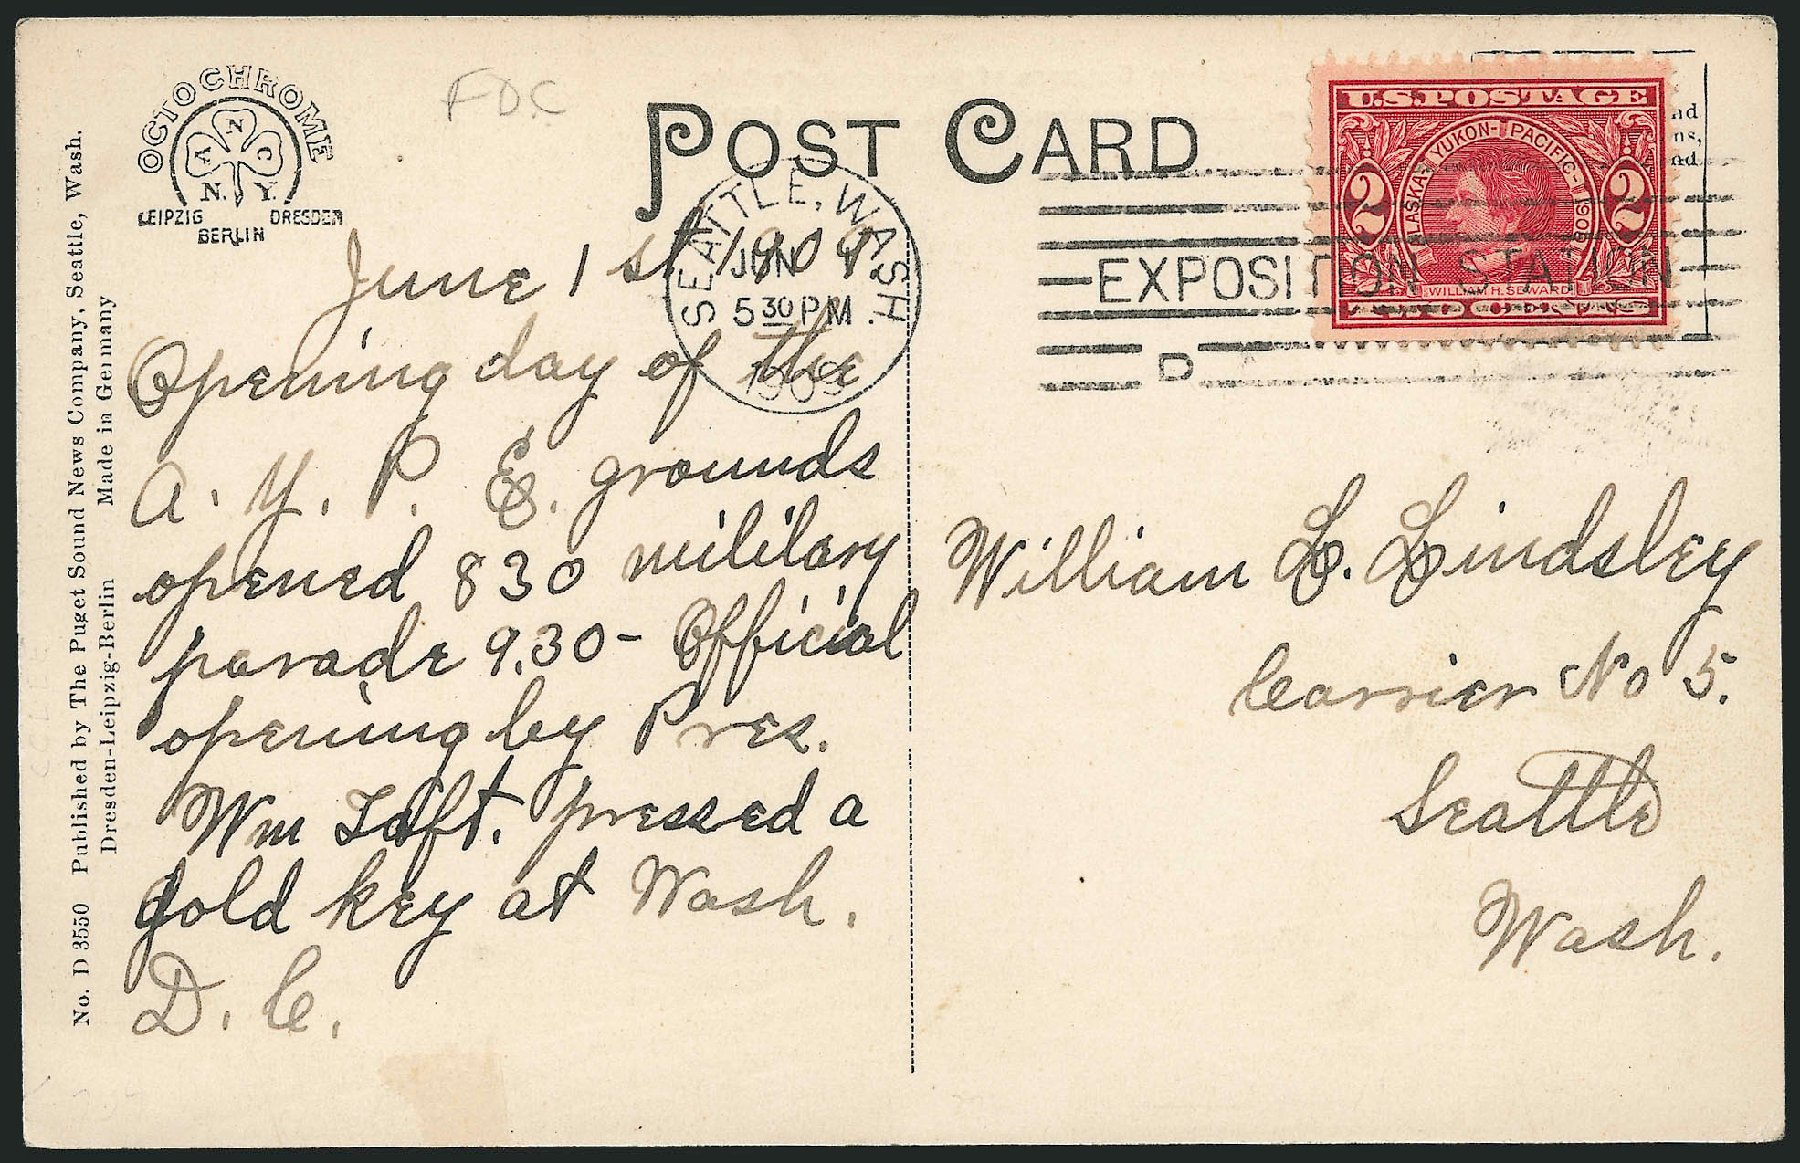 OCTOCHROME
A N C
N. Y.
LEIPZIG DRESDEN
BERLIN
FDC
POST CARD
U.S. POSTAGE
ALASKA-YUKON-PACIFIC-1909
2 2
WILLIAM H. SEWARD
nd
ns,
nd
SEATTLE, WASH.
JUN
5 30 PM
1909
EXPOSITION STATION
D
June 1st 1909
Opening day of the
A. Y. P. E. grounds
opened 830 mililary
parade 9.30 - Official
opening by Pres.
Wm Taft. pressed a
gold key at Wash.
D. C.
William L. Lindsley
Carrier No 5.
Seattle
Wash.
No. D 3550 Published by The Puget Sound News Company, Seattle, Wash.
Dresden-Leipzig-Berlin Made in Germany